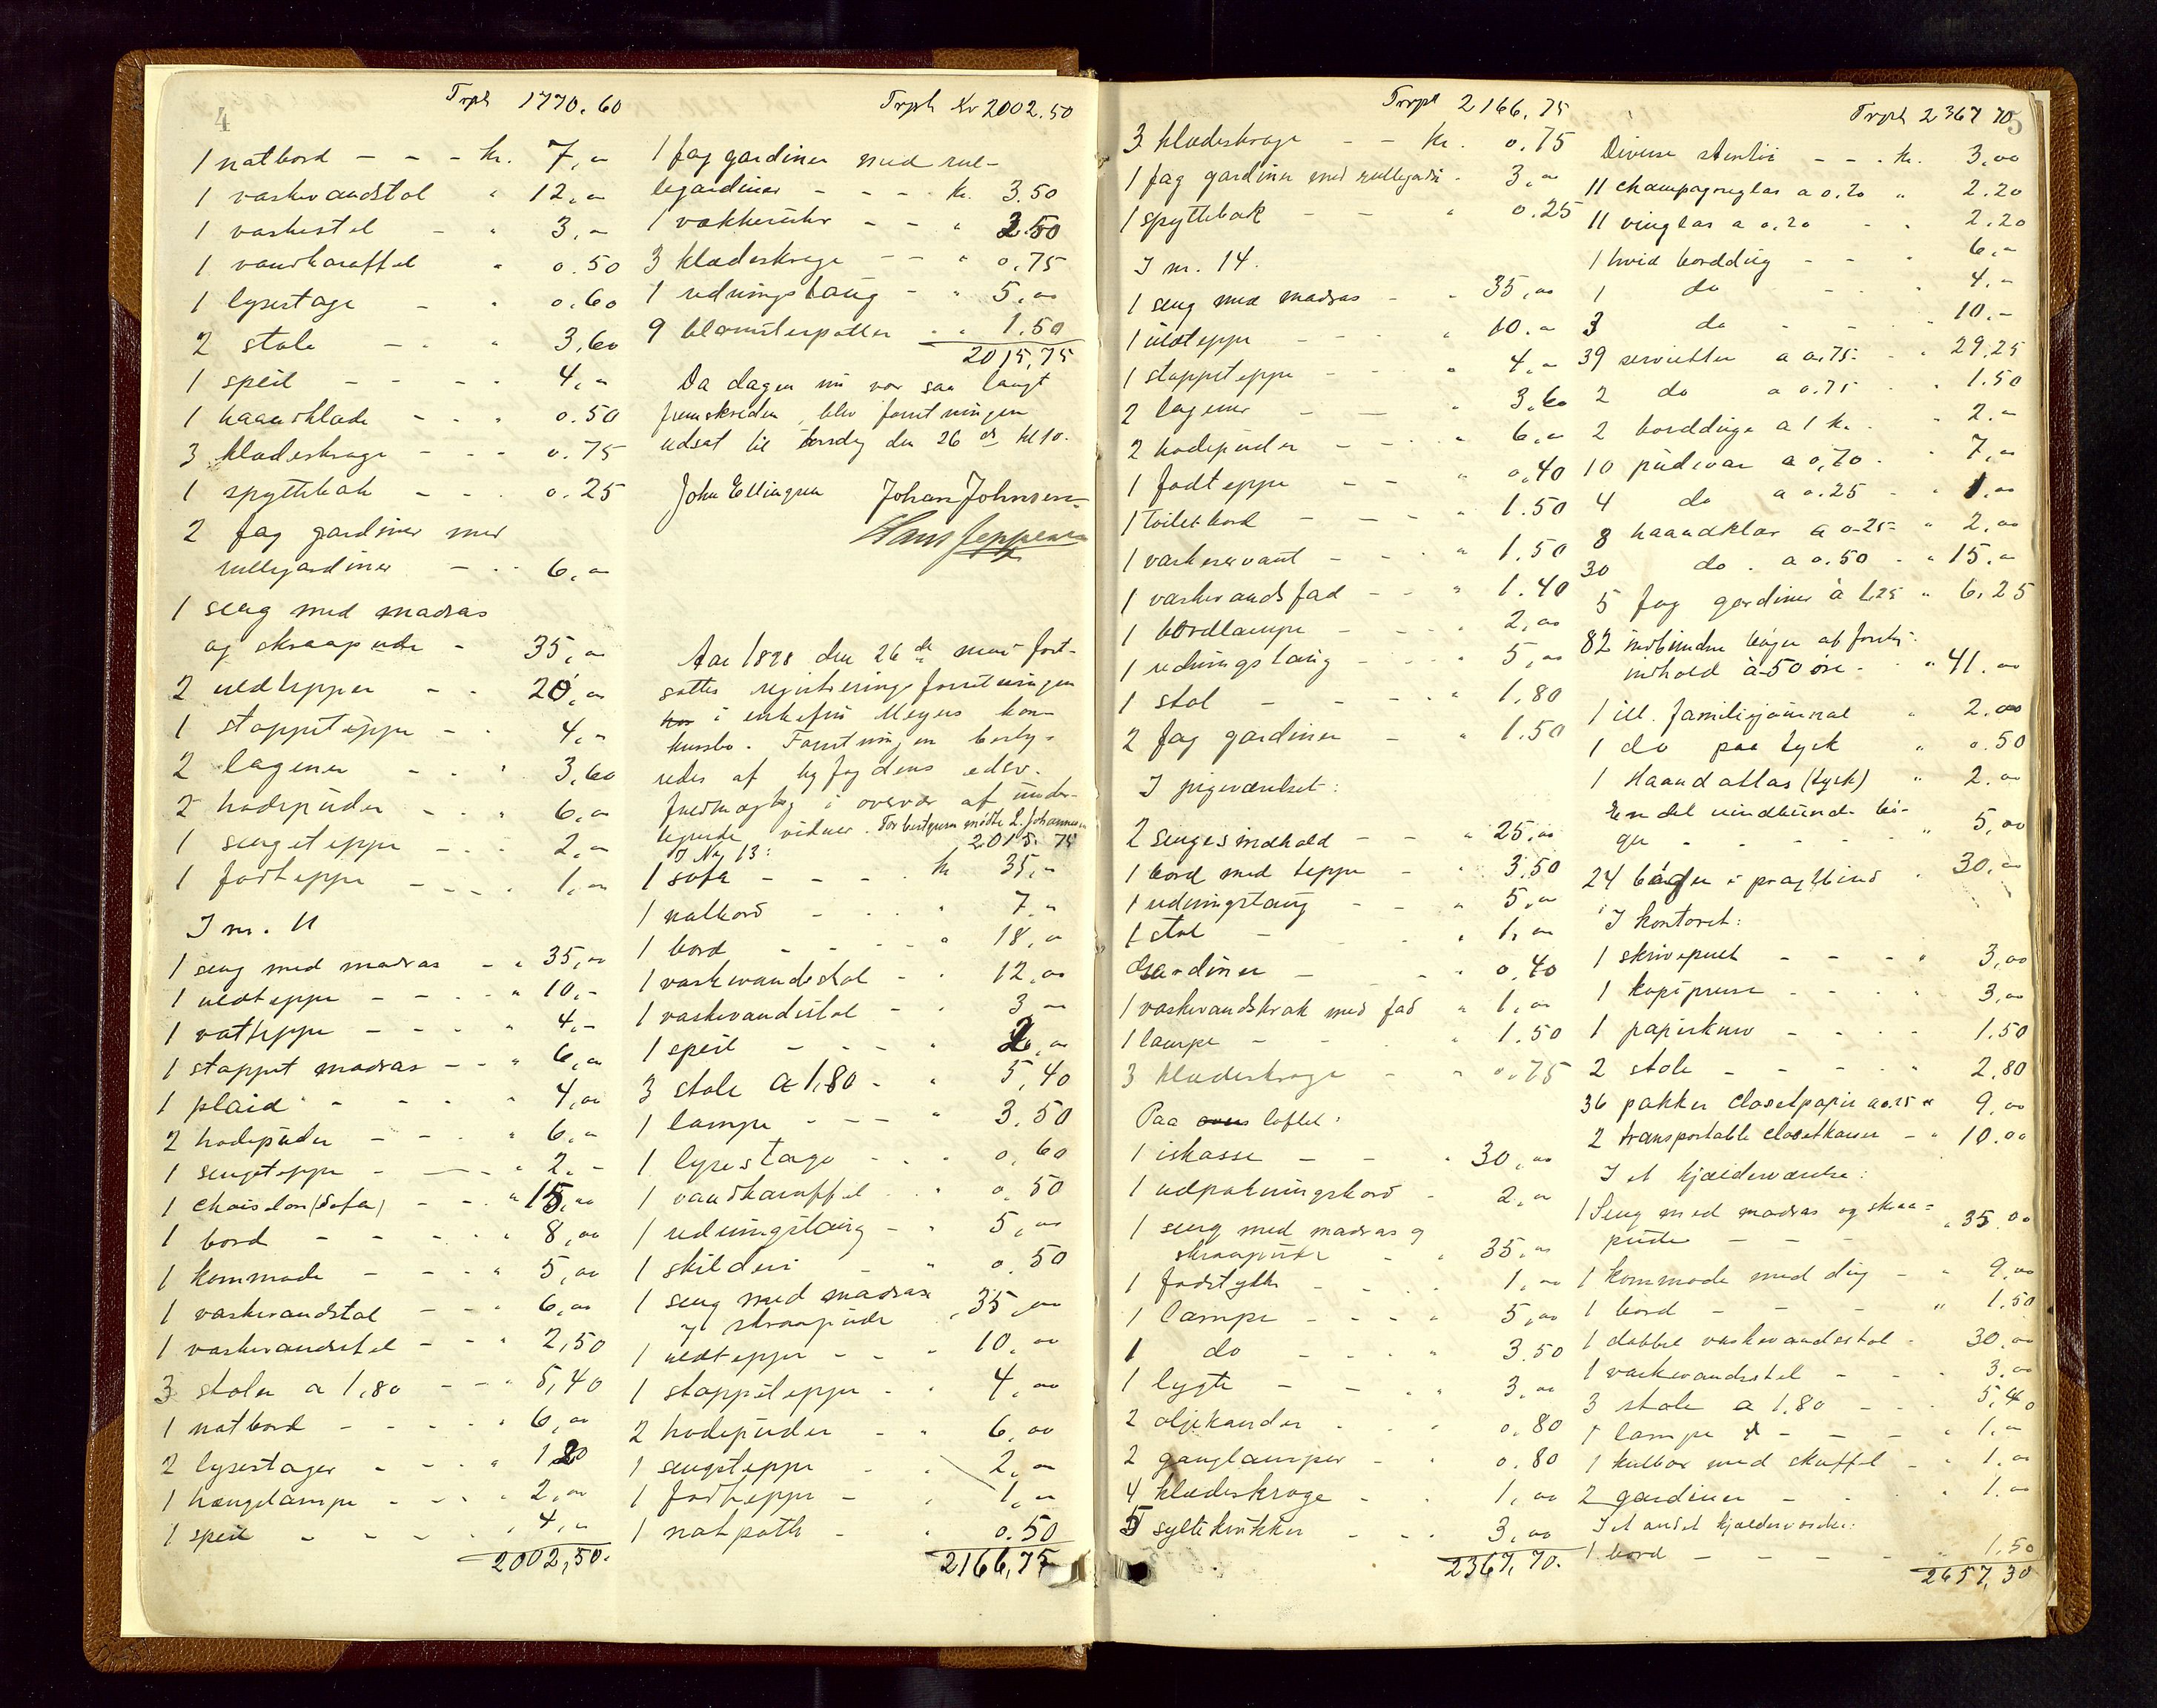 4
Trpt 1770.60
1 natbord - - - kr. 7,"
1 vaskevandstol " 12,"
1 vaskestel - " 3,"
1 vandkaraffel " 0.50
1 lysestage - " 0.60
2 stole - - " 3,60
1 speil - - - - 4,"
1 haandklæde - - " 0.50
3 klædeskroge - - - 0.75
1 spyttebak - - - 0.25
2 fag gardiner med
rullegardiner - - " 6,"
1 seng med madras
og skraapude - 35,"
2 uldtepper - - 20,"
1 stoppet teppe - - 4,"
2 lagener - - " 3,60
2 hodepuder - - " 6,"
1 sengeteppe - - - 2,"
1 fodteppe - - - - 1,"
I nr. 11
1 seng med madras - " 35,"
1 uldteppe - - - " 10,-
1 vatteppe - - - " 4,-
1 stoppet madras - - " 6,"
1 plaid - - - - " 4,00
2 hodepuder - - - " 6,-
1 sengeteppe - - - " 2,-
1 chaiselon (Sofa) - - " 15,00
1 bord - - - - " 8,00
1 kommode - - - " 5,00
1 vaskevandstol - - " 6,00
1 vaskevandsstel - - " 2,50
3 stoler a 1,80 - - " 5,40
1 natbord - - - - " 6,00
2 lysestager - - - " 1.20
1 hængelampe - - - " 2,00
1 speil - - - - " 4,"
2002,50.
Trpt Kr 2002.50
1 fag gardiner med rul-
legardiner - - - - kr. 3.50
1 vækkeruhr - - " 2.50
3 klædeskroge - - " 0.75
1 redningstaug - " 5,00
9 blomsterpotter - " 1.50
2015,75
Da dagen nu var saa langt
fremskreden, blev forretningen
udsat til torsdag den 26 ds kl 10.
John Ellingsen Johan Johnsen
Hans Jeppesen
Aar 1898 den 26de mai fort-
sattes registreringsforretningen
i enkefru Meyers kon-
kursbo. Forretningen besty-
redes af byfogdens edsv.
fuldmægtig i overvær af under-
tegnede vidner. For bestyreren mødte L. Johannesen
I No 13: 2015.75
1 sofa - - - - kr 35,-
1 natbord - - - " 7,"
1 bord - - - - " 18,"
1 vaskevandsstol - " 12,00
1 vaskevandsstel - " 3 -
1 speil - - - - " 2,00
3 stole a 1,80 - " 5,40
1 lampe - - - " 3.50
1 lysestage - - " 0,60
1 vandkaraffel - " 0.50
1 redningstaug - " 5,00
1 skilderi - " 0.50
1 seng med madras
og skraapude " 35,00
1 uldteppe - - " 10,00
1 stoppetteppe - " 4,00
2 hodepuder - " 6,00
1 sengeteppe - " 2,"
1 fodteppe - " 1,"
1 natpotte - " 0.50
2166,75
Trpt 2166.75
3 klædeskroge - - kr. 0.75
1 fag gardiner med rullegardi - 3,"
1 spyttebak - - " 0.25
I nr. 14.
1 seng med madras - " 35,00
1 uldteppe - - - " 10,"
1 stoppetteppe - - " 4,"
2 lagener - - " 3.60
2 hodepuder - - - " 6,"
1 fodteppe - - " 0,40
1 toiletbord - - - " 1.50
1 vaskeservant - - " 1.50
1 vaskevandsfad - - " 1.40
1 bordlampe - - - " 2,00
1 redningstaug - - - " 5,00
1 stol - - - - " 1,80
2 fag gardiner - - " 1.50
I pigeværelset:
2 sengesindhold - - " 25,00
1 bord med teppe - " 3.50
1 redningstaug - - " 5,"
1 stol - - - " 1,"
Gardiner - - " 0,40
1 vaskevandskrak med fad " 1,"
1 lampe - - - " 1.50
3 klædeskroge - " 0.75
Paa loftet:
1 iskasse - - " 30,00
1 udpakningsbord - 2,"
1 seng med madras og
skraapude - " 35,00
1 fodstykke - - - - 1,"
1 lampe - - - " 5,00
1 do - - - " 3.50
1 lygte - - - " 3,00
2 oljekander - - " 0,80
2 ganglamper - - " 0.80
4 klædeskroge - " 1,00
5 syltekrukker - - " 3,00
2367,70.
Trpt 2367 70
5
Diverse stentøi - - - kr. 3,00
11 champagneglas a 0.20 " 2.20
11 vinglas a 0.20 - " 2.20
1 hvid borddug - - " 6,-
1 do - - " 4,-
3 do - - " 10.-
39 servietter a 0.75 - " 29.25
2 do a 0.75 - " 1.50
2 bordduge a 1 kr. - " 2.-
10 pudevar a 0,70 - " 7,"
4 do a 0.25 - " 1,00
8 haandklær a 0.25 " 2,00
30 do. a 0.50 - " 15.-
5 fag gardiner à 1.25 " 6,25
82 indbundne bøger af forskj.
indhold à 50 øre - " 41.00
1 ill. familiejournal " 2.00
1 do paa tysk " 0.50
1 Haandatlas (tysk) " 2.00
En del uindbund. bø-
ger - - - - " 5,00
24 bøger i pragtbind " 30,00
I kontoret:
1 skrivepult - - - " 3,00
1 kopipresse - - - " 3,00
1 papirkurv - - - - 1.50
2 stole - - - - " 2,80
36 pakker closetpapir a 0.25 " 9,00
2 transportable closetkasser - " 10.00
I et kjælderværelse:
1 Seng med madras og skraa-
pude - - - " 35.00
1 kommode med dug - " 9,00
1 bord - - - " 1.50
1 dobbel vaskevandsstol - 30,00
1 vaskevandsstel - - " 3,00
3 stole a 1.80 - - - 5,40
1 lampe - - - " 1,"
1 kulbox med skuffel - " 1.00
2 gardiner - - - " 1.00
I et andet kjælderværelse:
1 bord - - - - " 1.50
2657,30